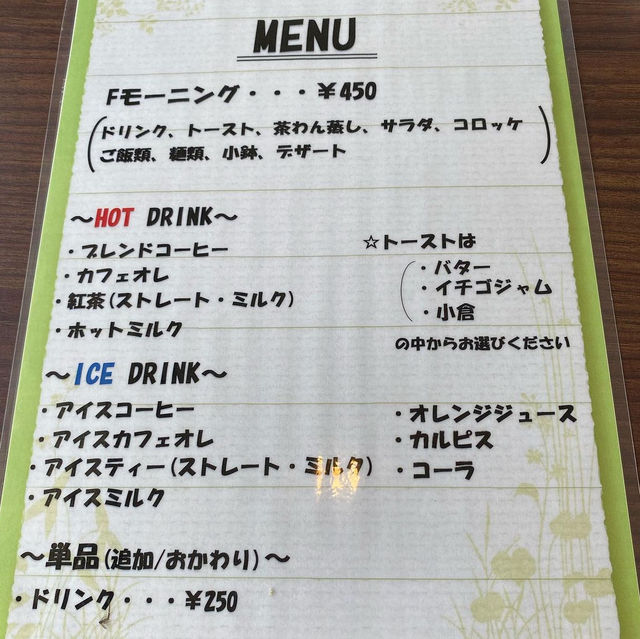 MENU
Fモーニング・・・¥450
(ドリンク、トースト、茶わん蒸し、サラダ、コロッケ
ご飯類、麺類、小鉢、デザート)
～HOT DRINK～
・ブレンドコーヒー
・カフェオレ
・紅茶(ストレート・ミルク)
・ホットミルク
☆トーストは
・バター
・イチゴジャム
・小倉
の中からお選びください
～ICE DRINK～
・アイスコーヒー
・アイスカフェオレ
・アイスティー(ストレート・ミルク)
・アイスミルク
・オレンジジュース
・カルピス
・コーラ
～単品(追加/おかわり)～
・ドリンク・・・¥250